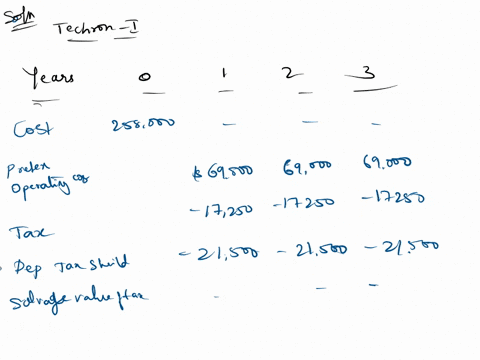 Soln
Techron-I
Years 0 1 2 3
Cost 258,000 - - -
Pretax
Operating cos $69,000 69,000 69,000
-17,250 -17250 -17250
Tax
Dep Tax Shild -21,500 -21,500 -21,500
Salvage value ftax - - -